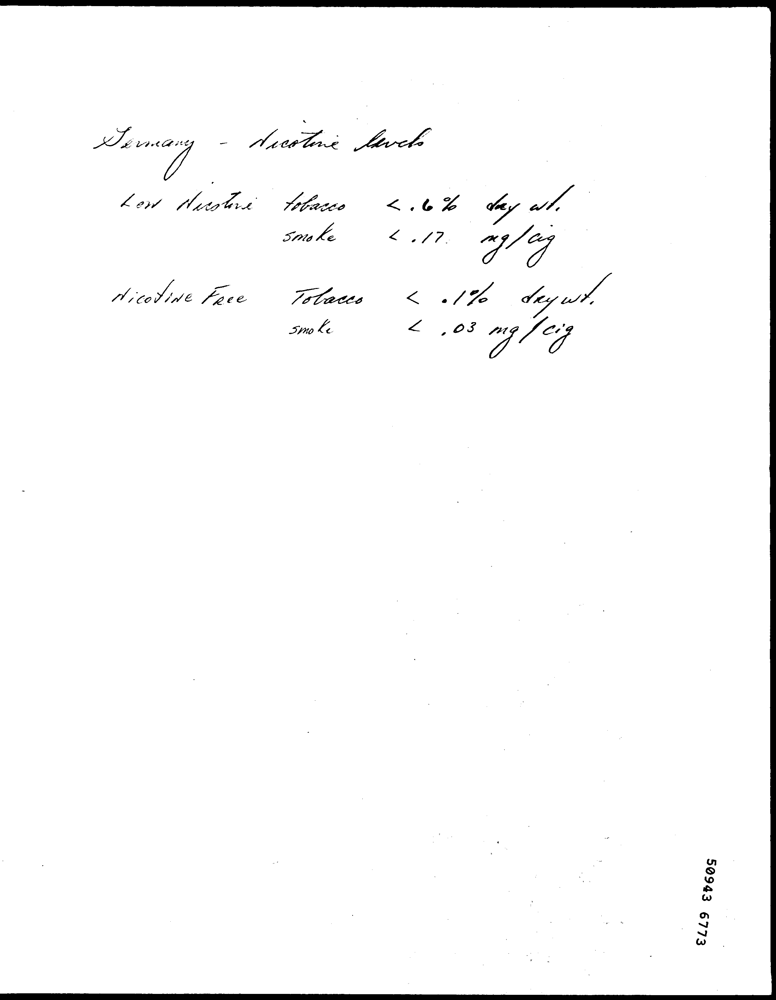 Germany - Nicotine levels
Low Nicotine tobacco < .6% dry wt.
smoke < .17 mg/cig
Nicotine Free Tobacco < .1% dry wt.
smoke < .03 mg/cig
50943 6773